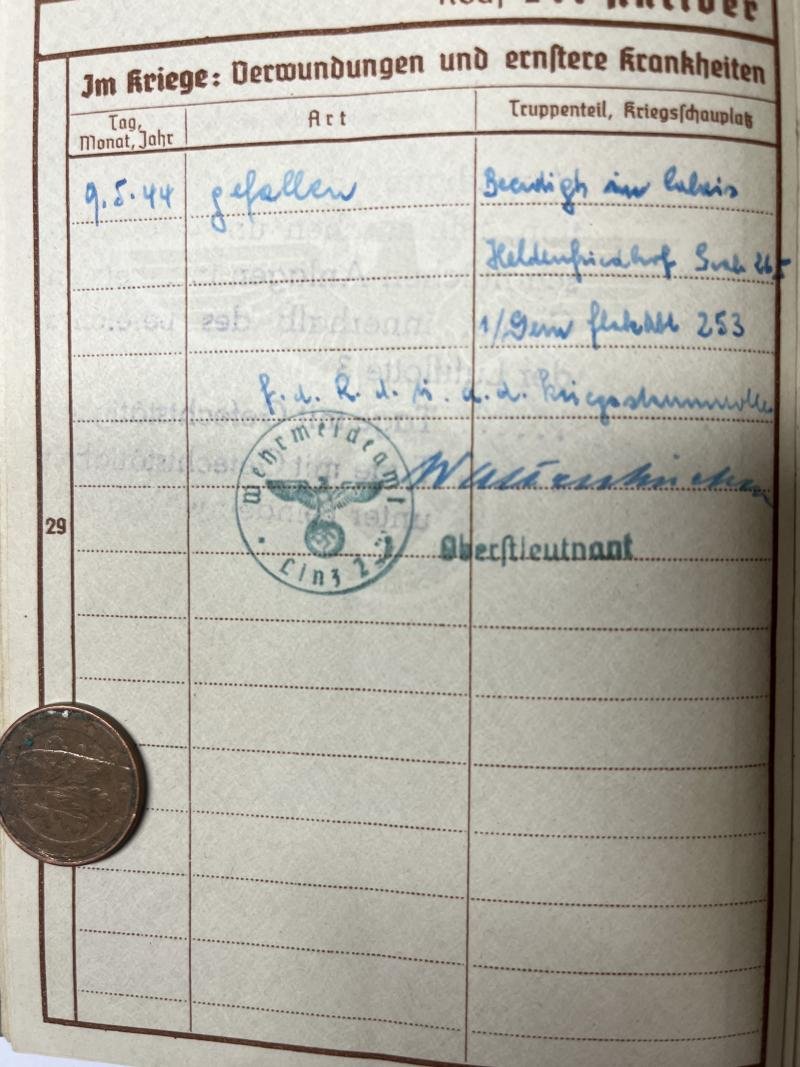 Im Kriege: Verwundungen und ernstere Krankheiten
Tag, Monat, Jahr
Art
Truppenteil, Kriegsschauplatz
9.5.44 gefallen Beerdigt in Calais
Heldenfriedhof Grab 265
1/ Flakabt 253
f. d. R. d. a. d. Kriegsstammrolle
Wehrmeldeamt
Linz 2
Oberstleutnant
29